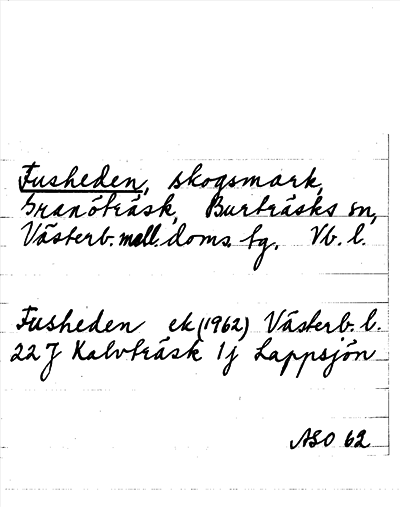 Fusheden, skogsmark,
Granöträsk, Burträsks sn,
Västerb. mell. doms. tg. Vb. l.
Fusheden ek (1962) Västerb. l.
22 J Kalvträsk 1j Lappsjön
ASO 62